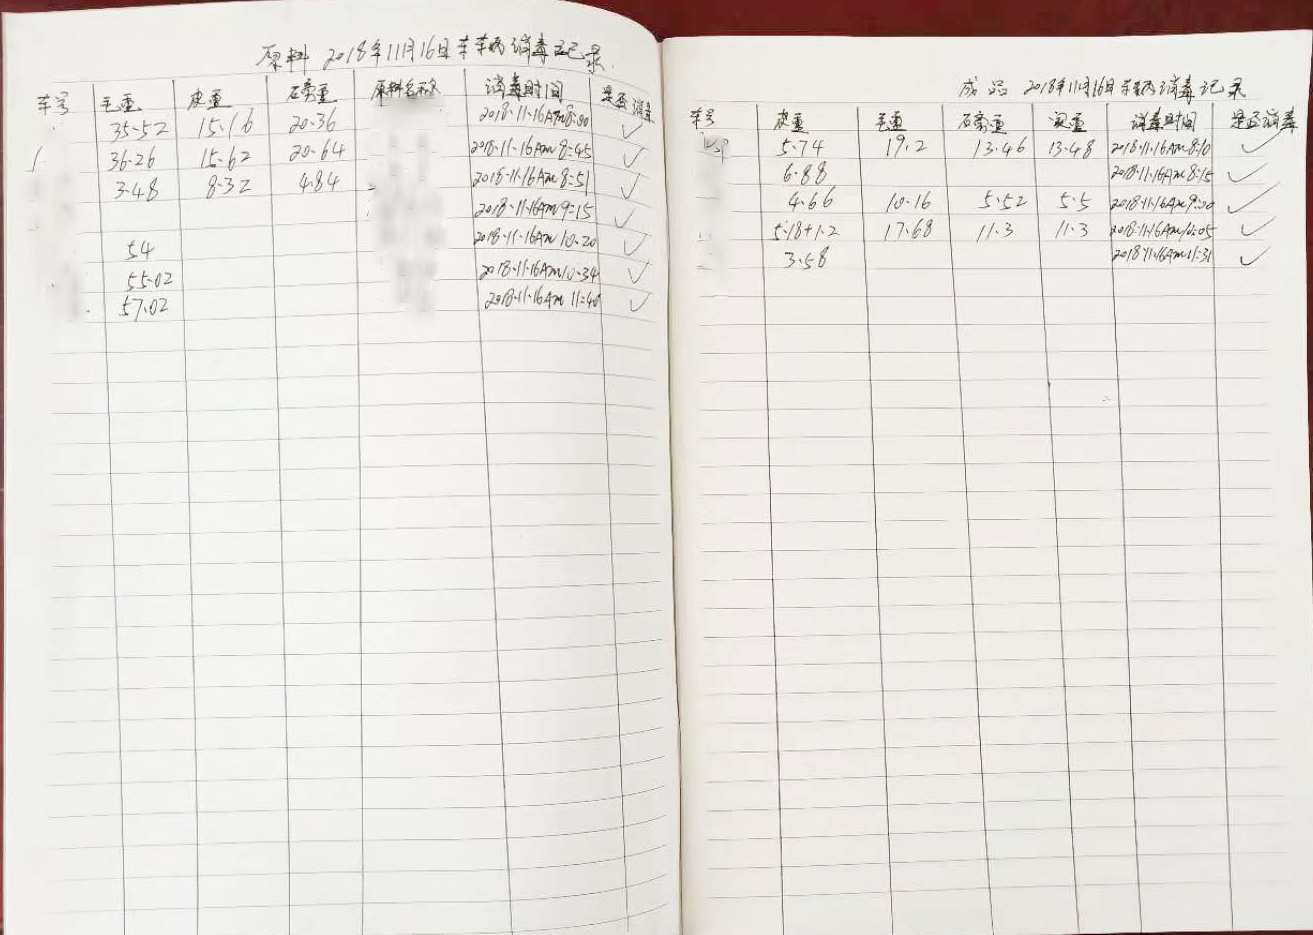 原料 2018年11月16日车车辆消毒记录
车号 毛重 皮重 石膏重 原料名称 消毒时间 是否消毒
35.52 15.16 20.36 2018.11.16Am8:00 ✓
36.26 15.62 20.64 2018.11.16Am 8:45 ✓
3.48 8.32 4.84 2018.11.16Am 8:51 ✓
2018.11.16Am 9:15 ✓
54 2018.11.16Am 10:20 ✓
55.02 2018.11.16Am10:34 ✓
57.02 2018.11.16Am 11:40 ✓
成品 2018年11月16日车辆消毒记录
车号 皮重 毛重 石膏重 消毒时间 是否消毒
5.74 19.2 13.46 13.48 2018.11.16Am 8:10 ✓
6.88 2018.11.16Am 8:15 ✓
4.66 10.16 5.52 5.5 2018.11.16Am9:20 ✓
5.18+1.2 17.68 11.3 11.3 2018.11.16Am10:05 ✓
3.58 2018.11.16Am11:31 ✓